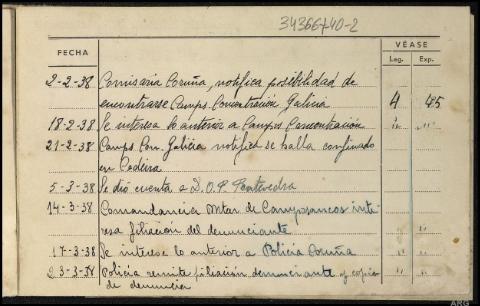 34366740-2
FECHA
VÉASE
Leg. Exp.
2-2-38 Comisaria Coruña, notifica posibilidad de
encontrarse Camps Concentración Galicia 4 45
18-2-38 Se interesa lo anterior a Camps Concentración
21-2-38 Camps Con. Galicia notifica se halla confinado
en Cedeira
5-3-38 Se dió cuenta a D.O.P. Pontevedra
14-3-38 Comandancia Mtar de Camposancos inte-
resa filiación del denunciante
17-3-38 Se interesa lo anterior a Policía Coruña
23-3-38 Policia remite filiación denunciante y copia
de denuncia
ARG